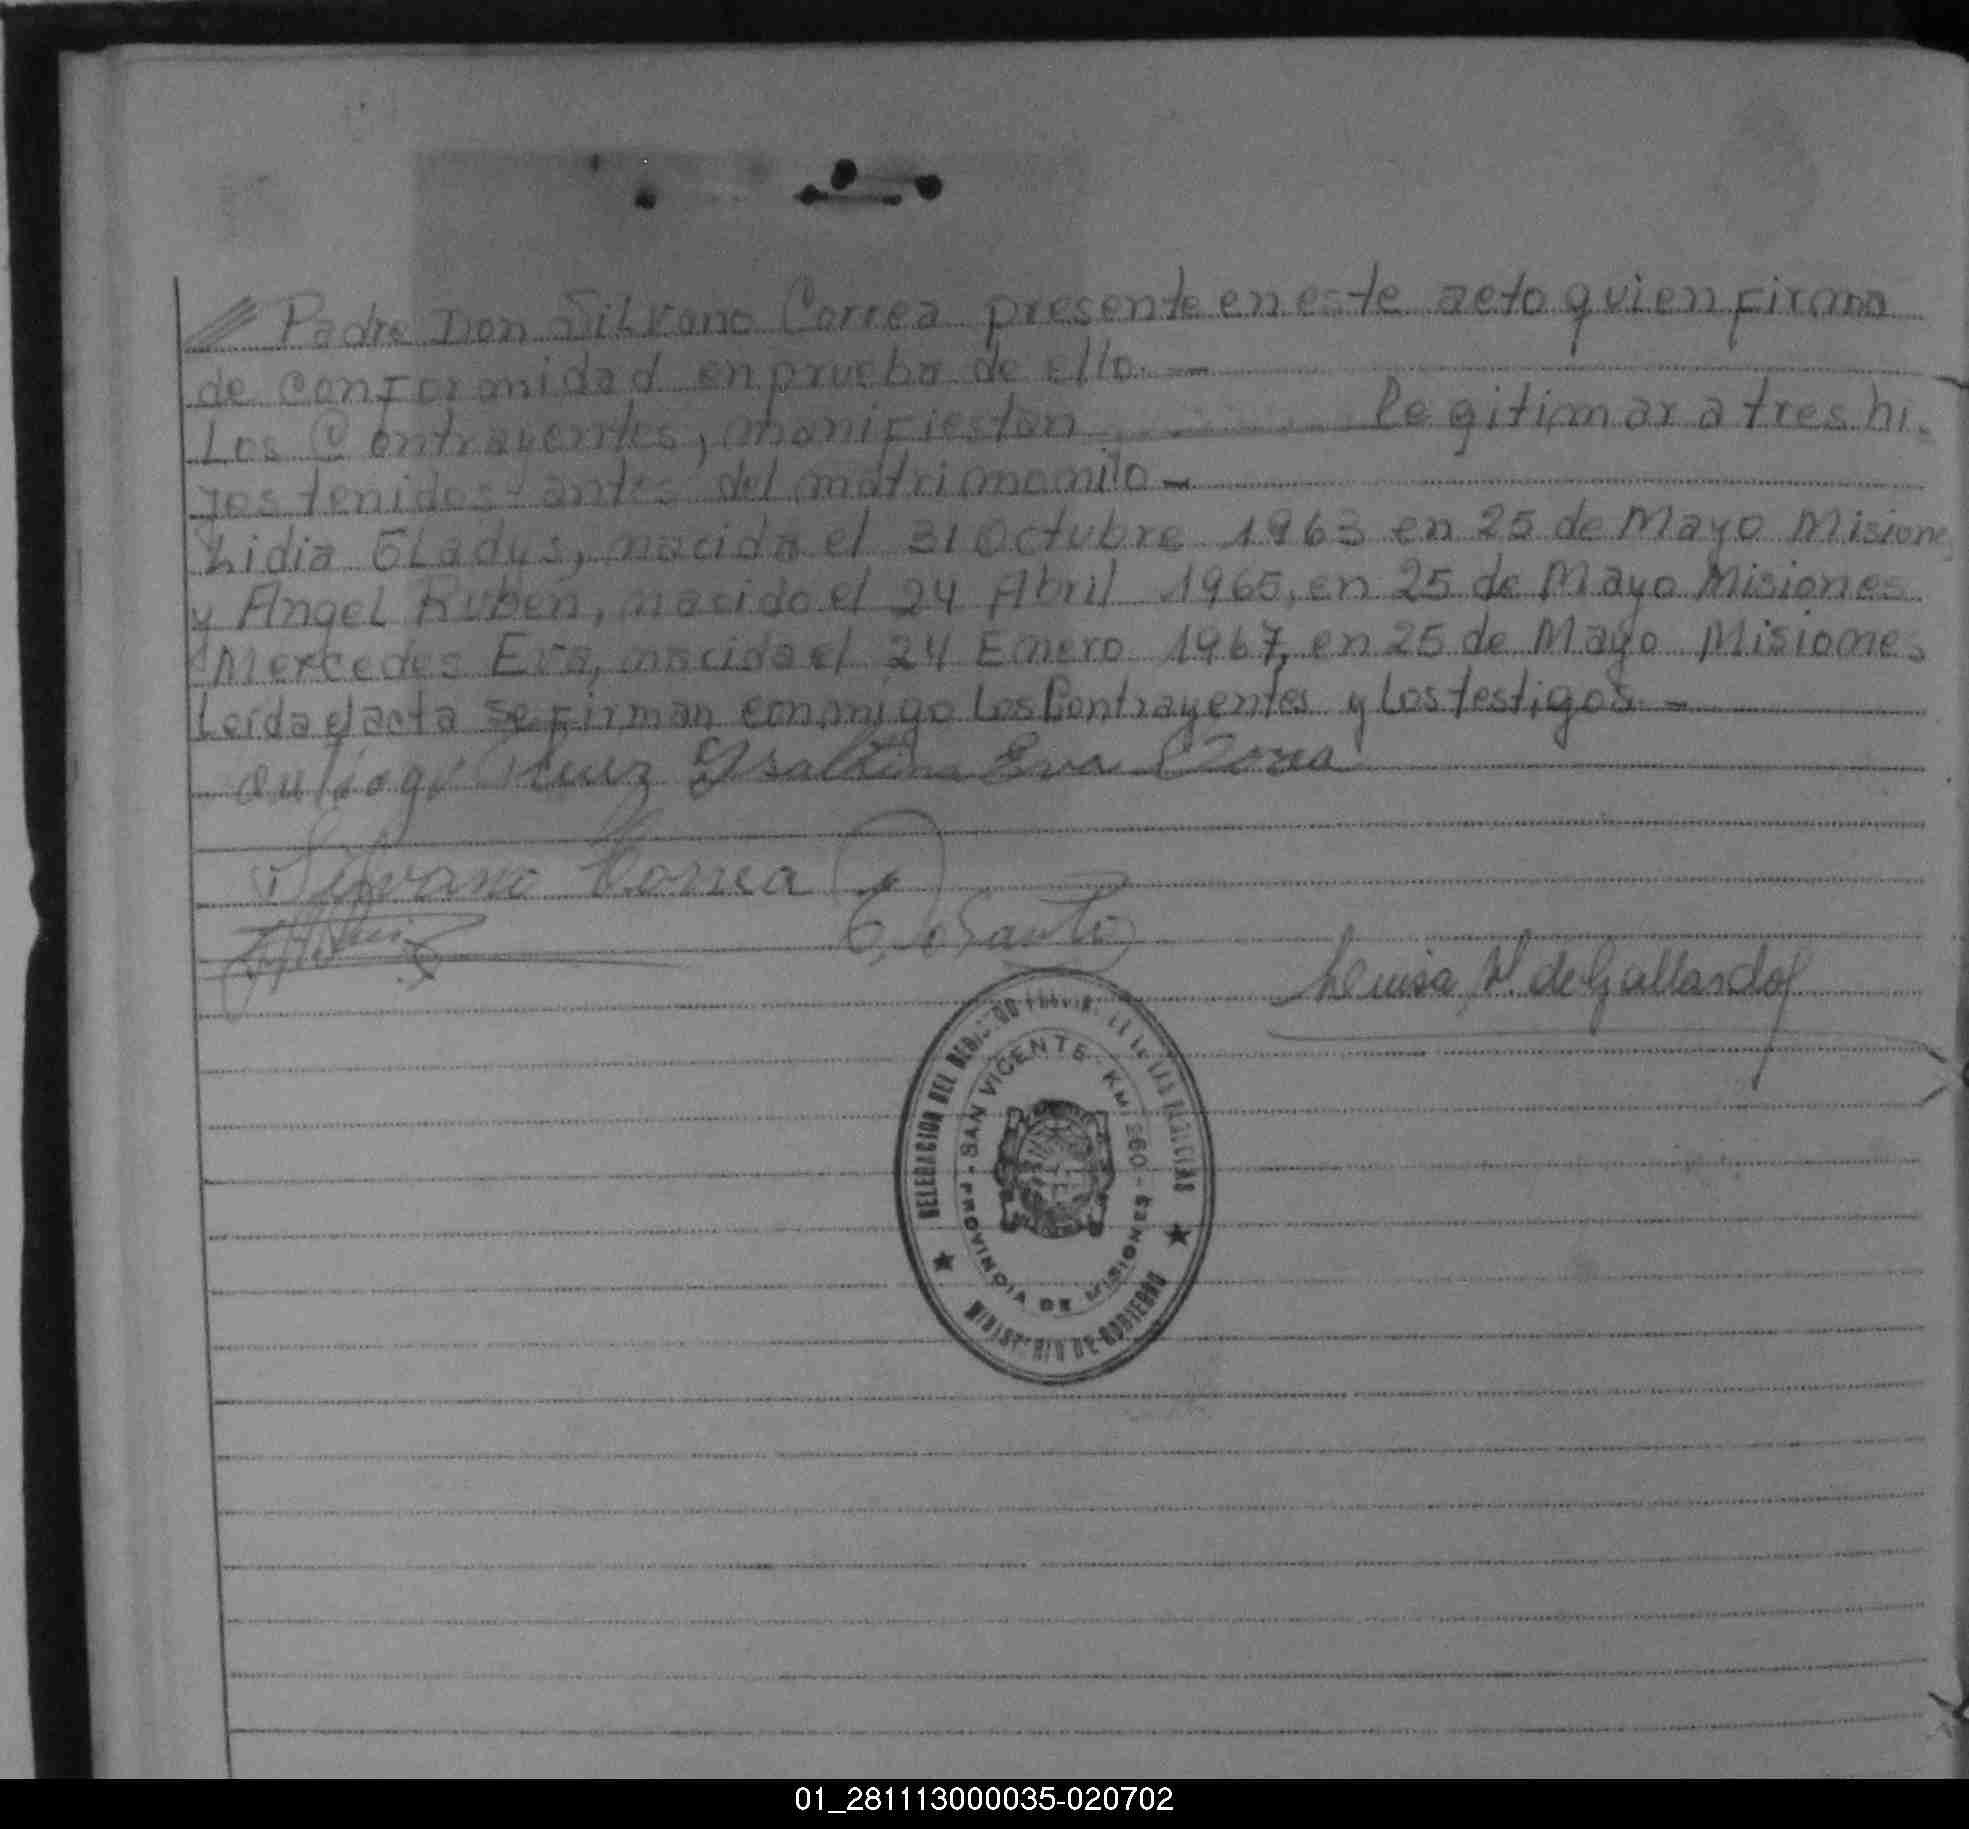 Padre Don Silvano Correa presente en este acto quien firma
de conformidad en prueba de ello. —
Los Contrayentes, manifiestan legitimar a tres hi-
jos tenidos antes del matrimonio —
Lidia Gladys, nacida el 31 Octubre 1963 en 25 de Mayo Misiones
y Angel Ruben, nacido el 24 Abril 1965, en 25 de Mayo Misiones
Mercedes Eva, nacida el 24 Enero 1967, en 25 de Mayo Misiones
Leída el acta se firman conmigo los Contrayentes y los testigos. —
Eva
Silvano Correa
Luisa V. de Gallardo
DELEGACION DEL REGISTRO PROVINCIAL DE LAS
SAN VICENTE - KM. 260 -
PROVINCIA DE MISIONES
MINISTERIO DE GOBIERNO
01_281113000035-020702